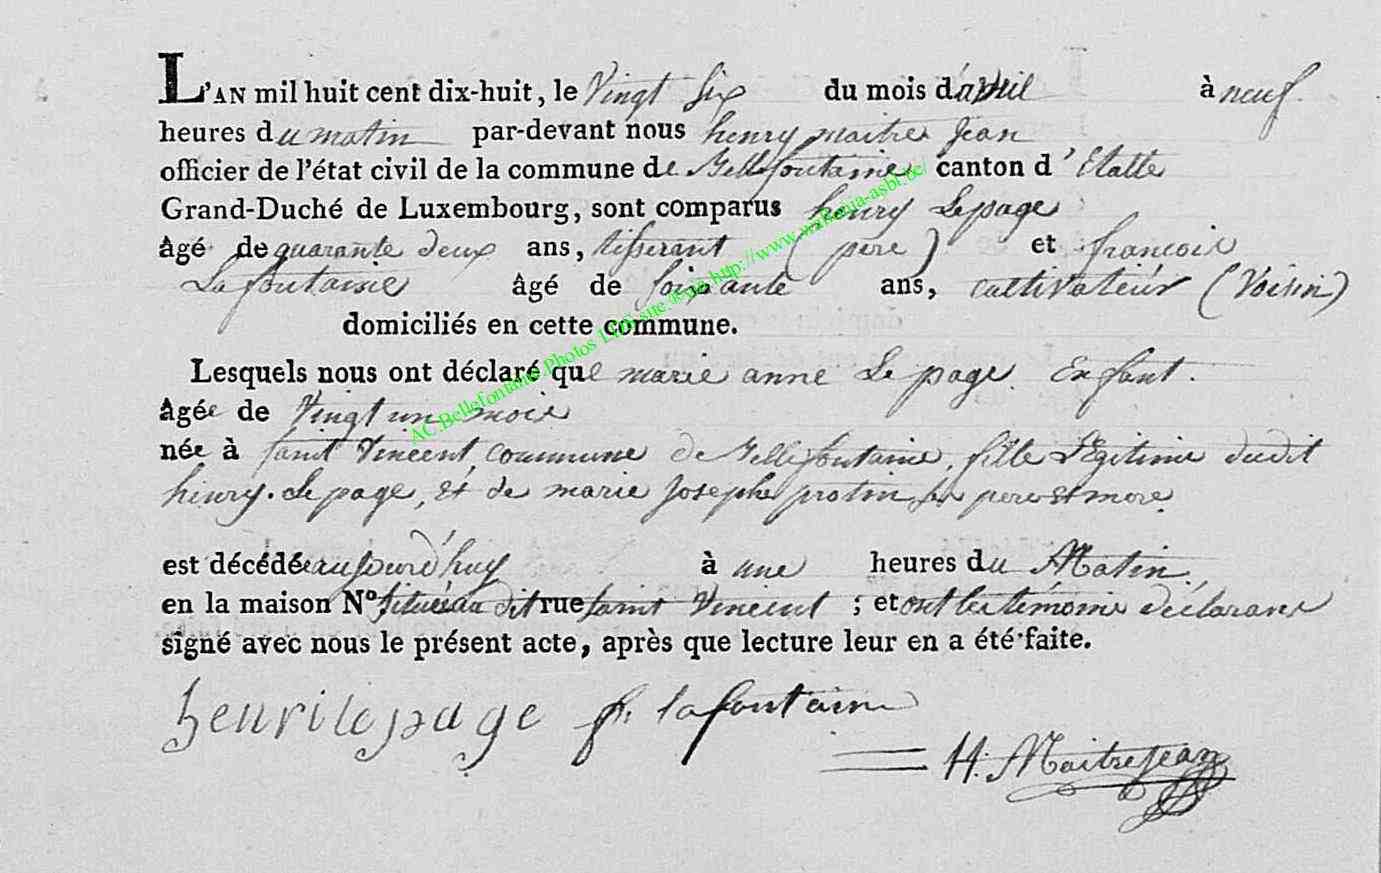 L'AN mil huit cent dix-huit, le Vingt Six du mois d'avril à neuf
heures du matin par-devant nous henry maitre Jean
officier de l'état civil de la commune de Bellefontaine canton d'Etalle
Grand-Duché de Luxembourg, sont comparus henry Lepage
âgé de quarante deux ans, tisserant (pere) et francois
Lafontaine âgé de soixante ans, cultivateur (Voisin)
domiciliés en cette commune.
Lesquels nous ont déclaré que marie anne Le page Enfant.
âgée de Vingt un mois
née à saint Vincent, commune de Bellefontaine, fille Legitime dudit
henry Le page, et de marie Josephe protin, pere et mere.
est décédée aujourd'huy à une heures du Matin,
en la maison No. située au dit rue saint Vincent ; et ont les témoins déclarans
signé avec nous le présent acte, après que lecture leur en a été faite.
henri lepage f. lafontaine
H. Maitrejean
AC Bellefontaine Photos http://www.wallonia-asbl.be/